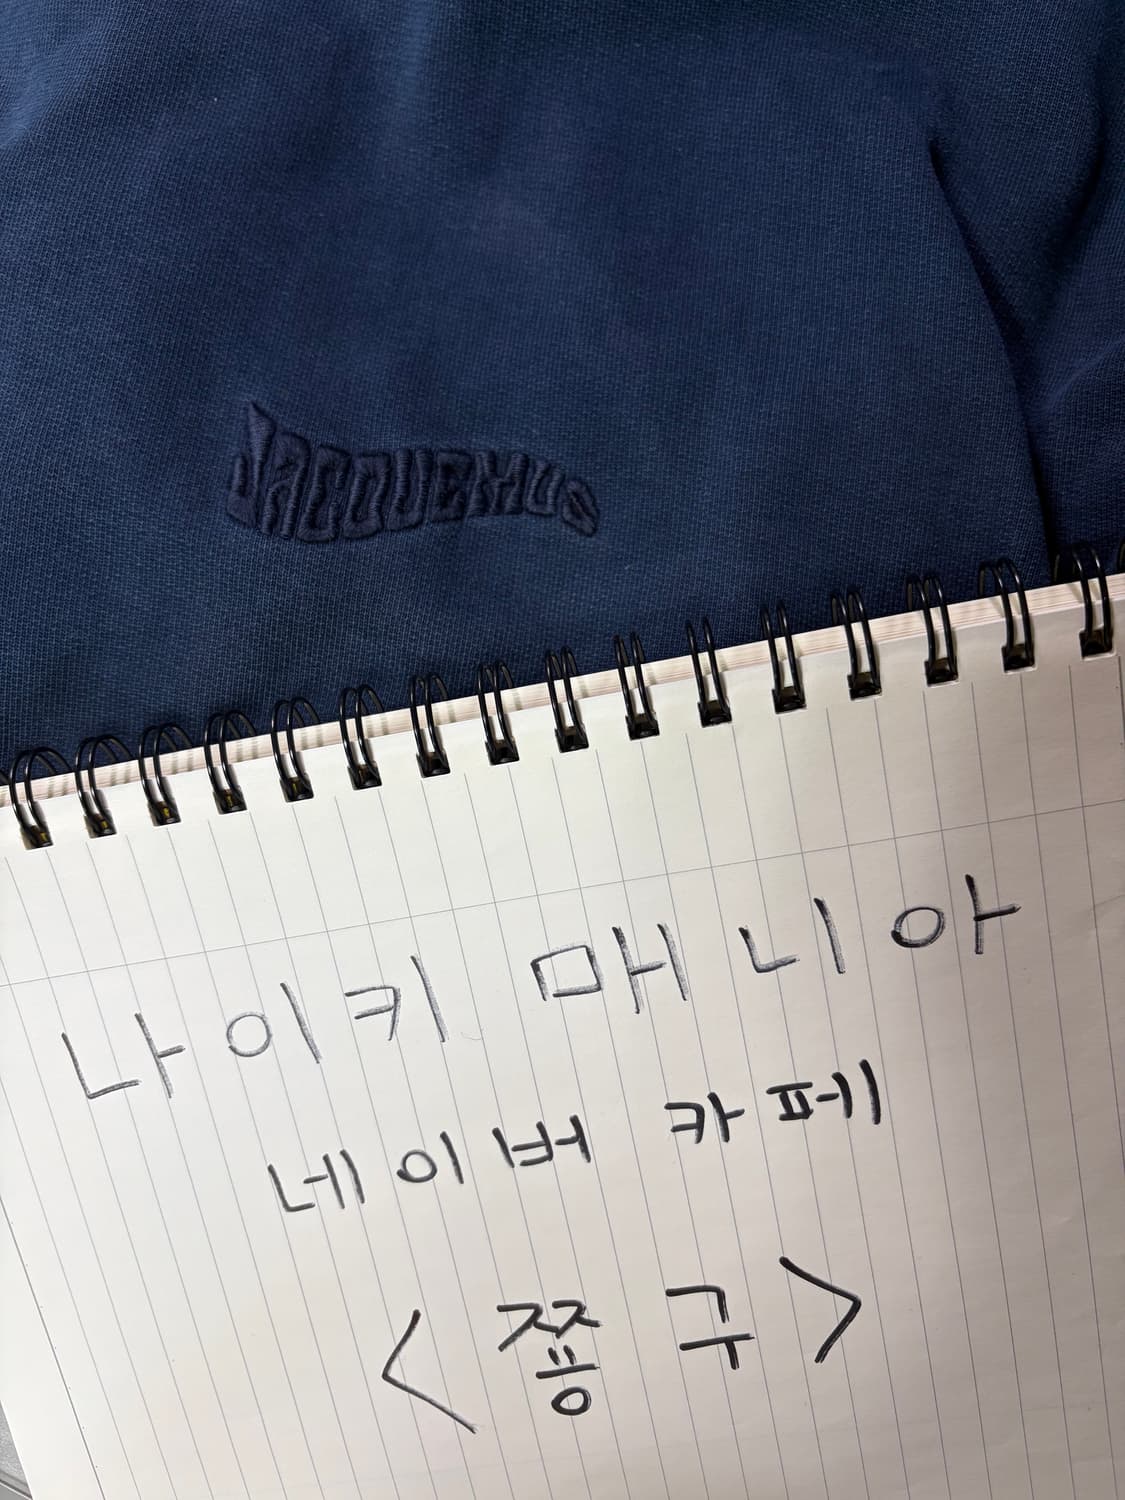 JACQUEMUS
나이키 매니아
네이버 카페
<쭁구>